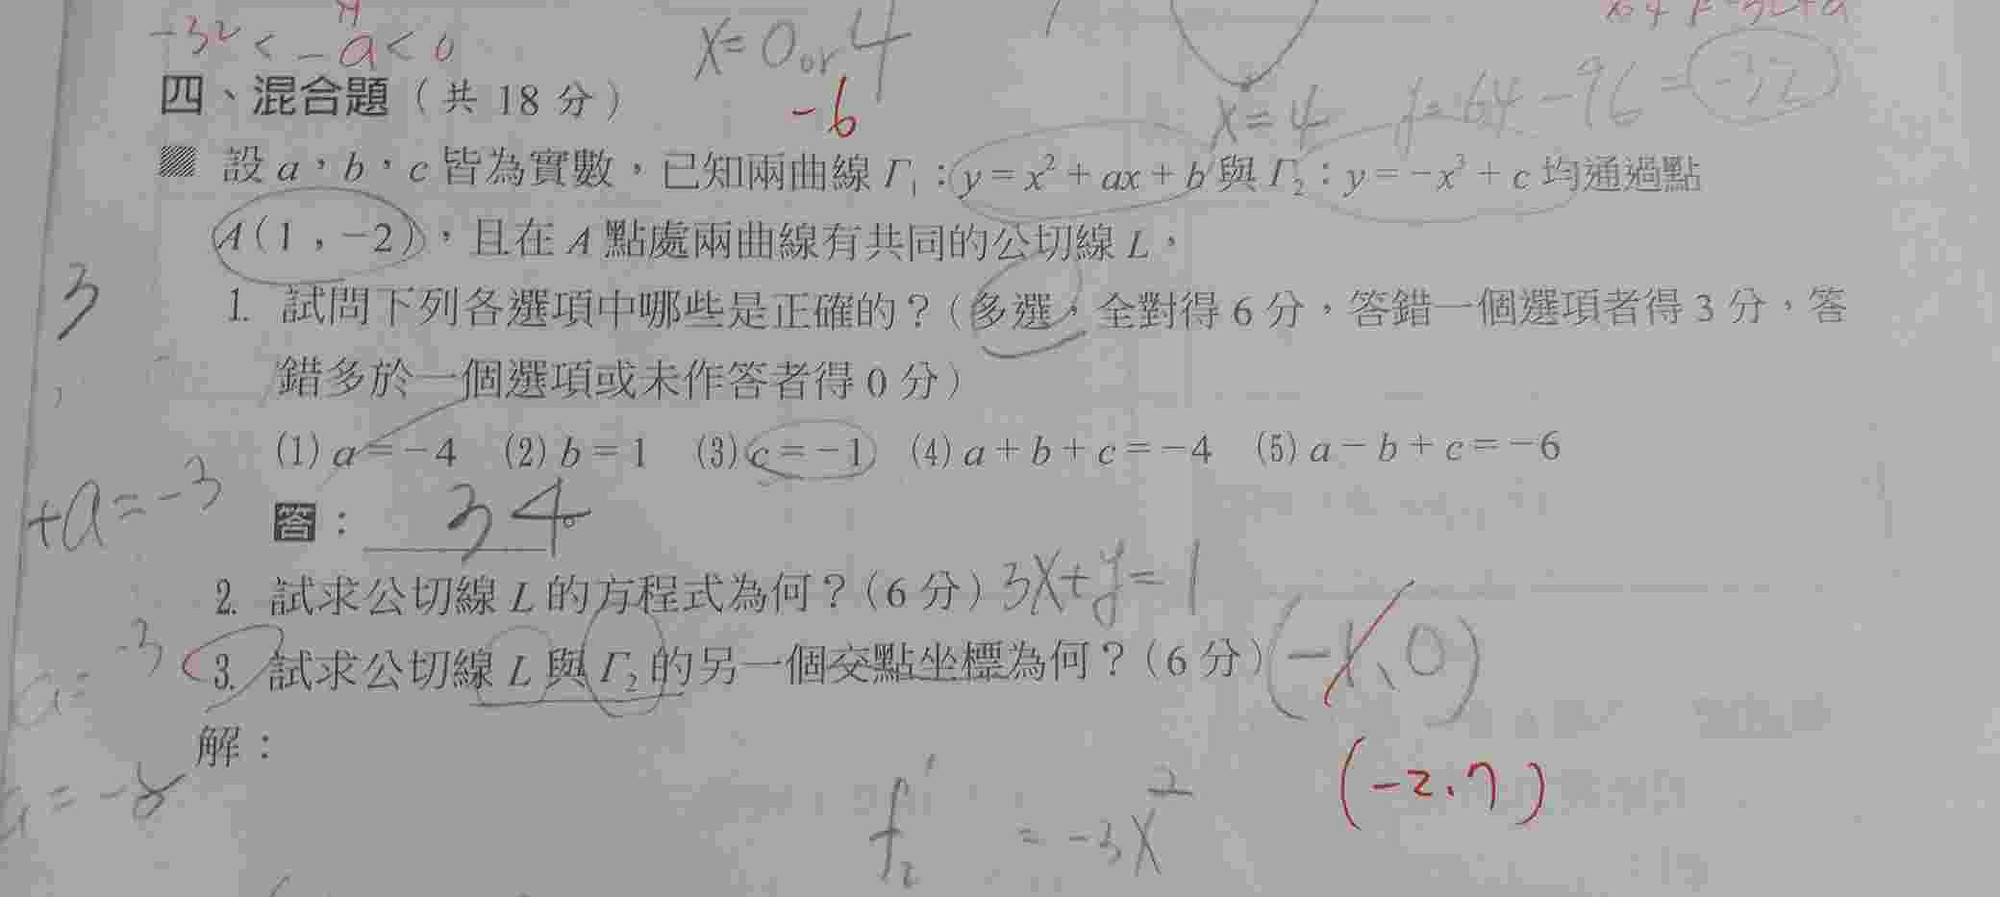 -32 < -a < 0
x = 0 or 4
-6
四、混合題（共 18 分）
x = 4 y = 64 - 96 = -32
設 a，b，c 皆為實數，已知兩曲線 Γ₁：y = x² + ax + b 與 Γ₂：y = -x³ + c 均通過點
A(1，-2)，且在 A 點處兩曲線有共同的公切線 L，
3
1. 試問下列各選項中哪些是正確的？（多選，全對得 6 分，答錯一個選項者得 3 分，答
錯多於一個選項或未作答者得 0 分）
(1) a = -4 (2) b = 1 (3) c = -1 (4) a + b + c = -4 (5) a - b + c = -6
+a = -3
答： 34
2. 試求公切線 L 的方程式為何？（6 分）3x+y=1
3. 試求公切線 L 與 Γ₂ 的另一個交點坐標為何？（6 分）(-1、0)
a = -3
解：
(-2、7)
f₂' = -3x²